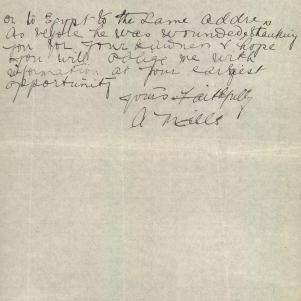 or to Egypt to the same address
as before he was wounded, thanking
you for your kindness & hope
you will oblige me with
information at your earliest
opportunity
yours Faithfully
A Mills